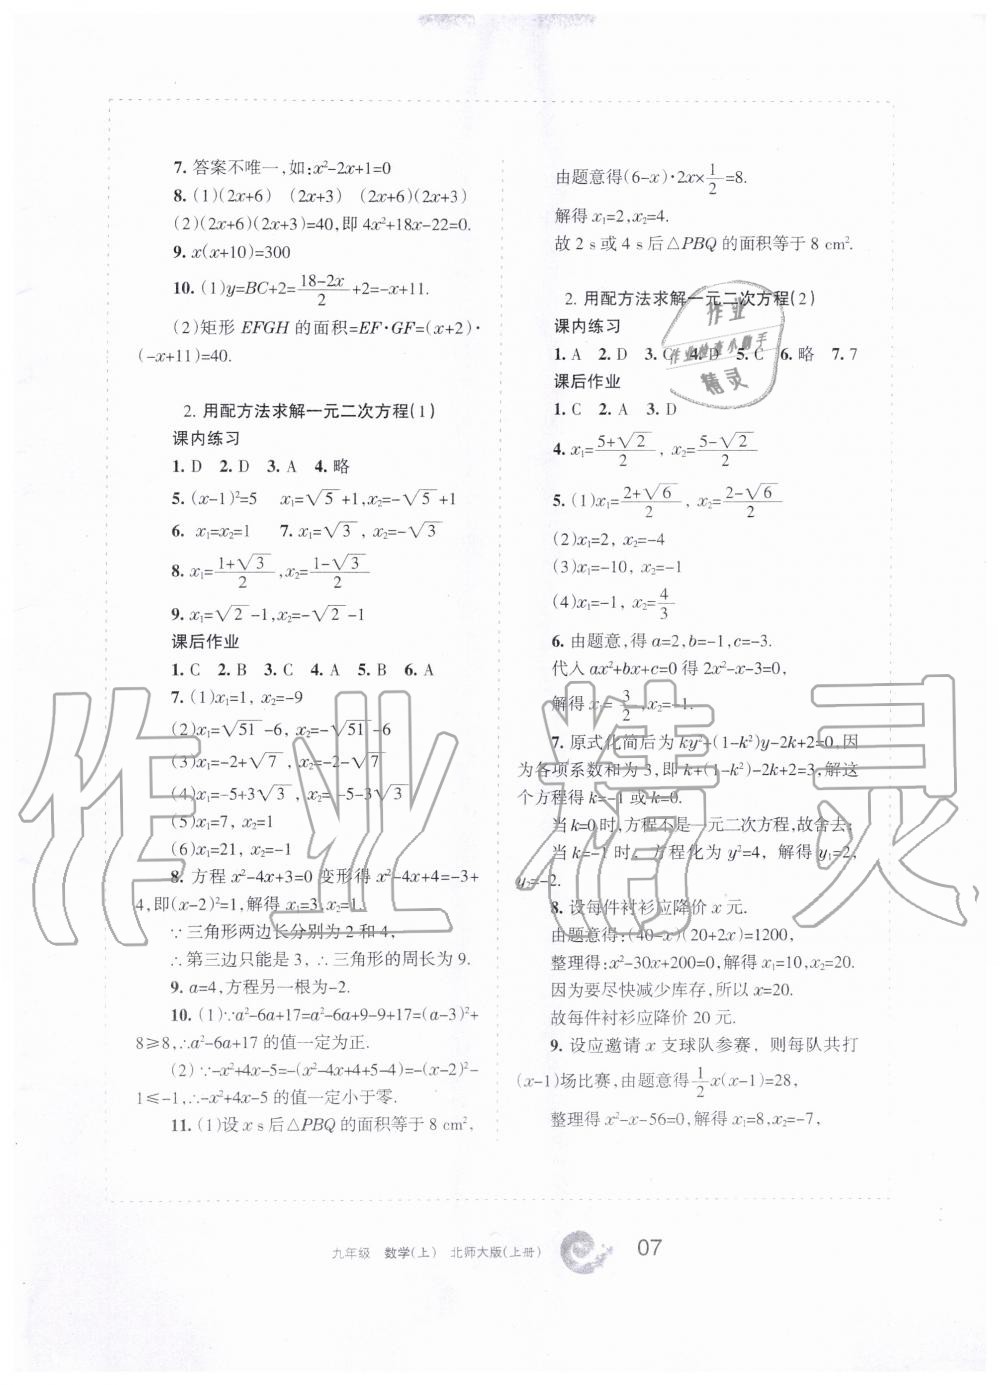 7. 答案不唯一,如:x²-2x+1=0
8. (1)(2x+6) (2x+3) (2x+6)(2x+3)
(2)(2x+6)(2x+3)=40,即 4x²+18x-22=0.
9. x(x+10)=300
10. (1)y=BC+2=(18-2x)/2+2=-x+11.
(2)矩形 EFGH 的面积=EF·GF=(x+2)·
(-x+11)=40.
2. 用配方法求解一元二次方程(1)
课内练习
1. D 2. D 3. A 4. 略
5. (x-1)²=5 x₁=√5+1,x₂=-√5+1
6. x₁=x₂=1 7. x₁=√3, x₂=-√3
8. x₁=(1+√3)/2,x₂=(1-√3)/2
9. x₁=√2-1,x₂=-√2-1
课后作业
1. C 2. B 3. C 4. A 5. B 6. A
7. (1)x₁=1, x₂=-9
(2)x₁=√51-6, x₂=-√51-6
(3)x₁=-2+√7, x₂=-2-√7
(4)x₁=-5+3√3, x₂=-5-3√3
(5)x₁=7, x₂=1
(6)x₁=21, x₂=-1
8. 方程 x²-4x+3=0 变形得 x²-4x+4=-3+
4,即(x-2)²=1,解得 x₁=3,x₂=1.
∵三角形两边长分别为 2 和 4,
∴第三边只能是 3, ∴三角形的周长为 9.
9. a=4,方程另一根为-2.
10. (1)∵a²-6a+17=a²-6a+9-9+17=(a-3)²+
8≥8,∴a²-6a+17 的值一定为正.
(2)∵-x²+4x-5=-(x²-4x+4+5-4)=-(x-2)²-
1≤-1,∴-x²+4x-5 的值一定小于零.
11. (1)设 x s 后△PBQ 的面积等于 8 cm²,
由题意得(6-x)·2x×1/2=8.
解得 x₁=2,x₂=4.
故 2 s 或 4 s 后△PBQ 的面积等于 8 cm².
2. 用配方法求解一元二次方程(2)
课内练习
1. A 2. D 3. C 4. D 5. C 6. 略 7. 7
课后作业
1. C 2. A 3. D
4. x₁=(5+√2)/2, x₂=(5-√2)/2
5. (1)x₁=(2+√6)/2, x₂=(2-√6)/2
(2)x₁=2, x₂=-4
(3)x₁=-10, x₂=-1
(4)x₁=-1, x₂=4/3
6. 由题意,得 a=2,b=-1,c=-3.
代入 ax²+bx+c=0 得 2x²-x-3=0,
解得 x₁=3/2,x₂=-1.
7. 原式化简后为 ky²+(1-k²)y-2k+2=0,因
为各项系数和为 3,即 k+(1-k²)-2k+2=3,解这
个方程得 k=-1 或 k=0.
当 k=0 时,方程不是一元二次方程,故舍去;
当 k=-1 时,方程化为 y²=4, 解得 y₁=2,
y₂=-2.
8. 设每件衬衫应降价 x 元.
由题意得:(40-x)(20+2x)=1200,
整理得:x²-30x+200=0,解得 x₁=10,x₂=20.
因为要尽快减少库存,所以 x=20.
故每件衬衫应降价 20 元.
9. 设应邀请 x 支球队参赛, 则每队共打
(x-1)场比赛,由题意得1/2x(x-1)=28,
整理得 x²-x-56=0,解得 x₁=8,x₂=-7,
九年级 数学(上) 北师大版(上册) 07
作业
作业检查小助手
精灵
作业精灵